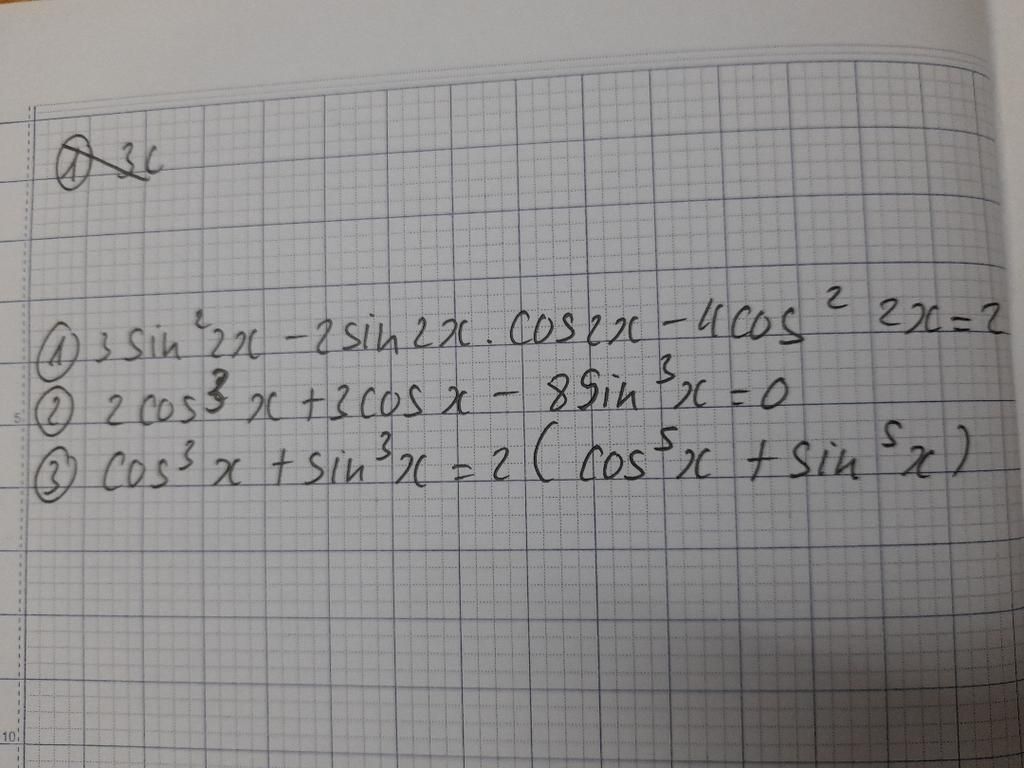 ① 3c
① 3sin²2x - 2sin2x.cos2x - 4cos² 2x = 2
② 2cos³x + 3cosx - 8sin³x = 0
③ cos³x + sin³x = 2(cos⁵x + sin⁵x)
5
10